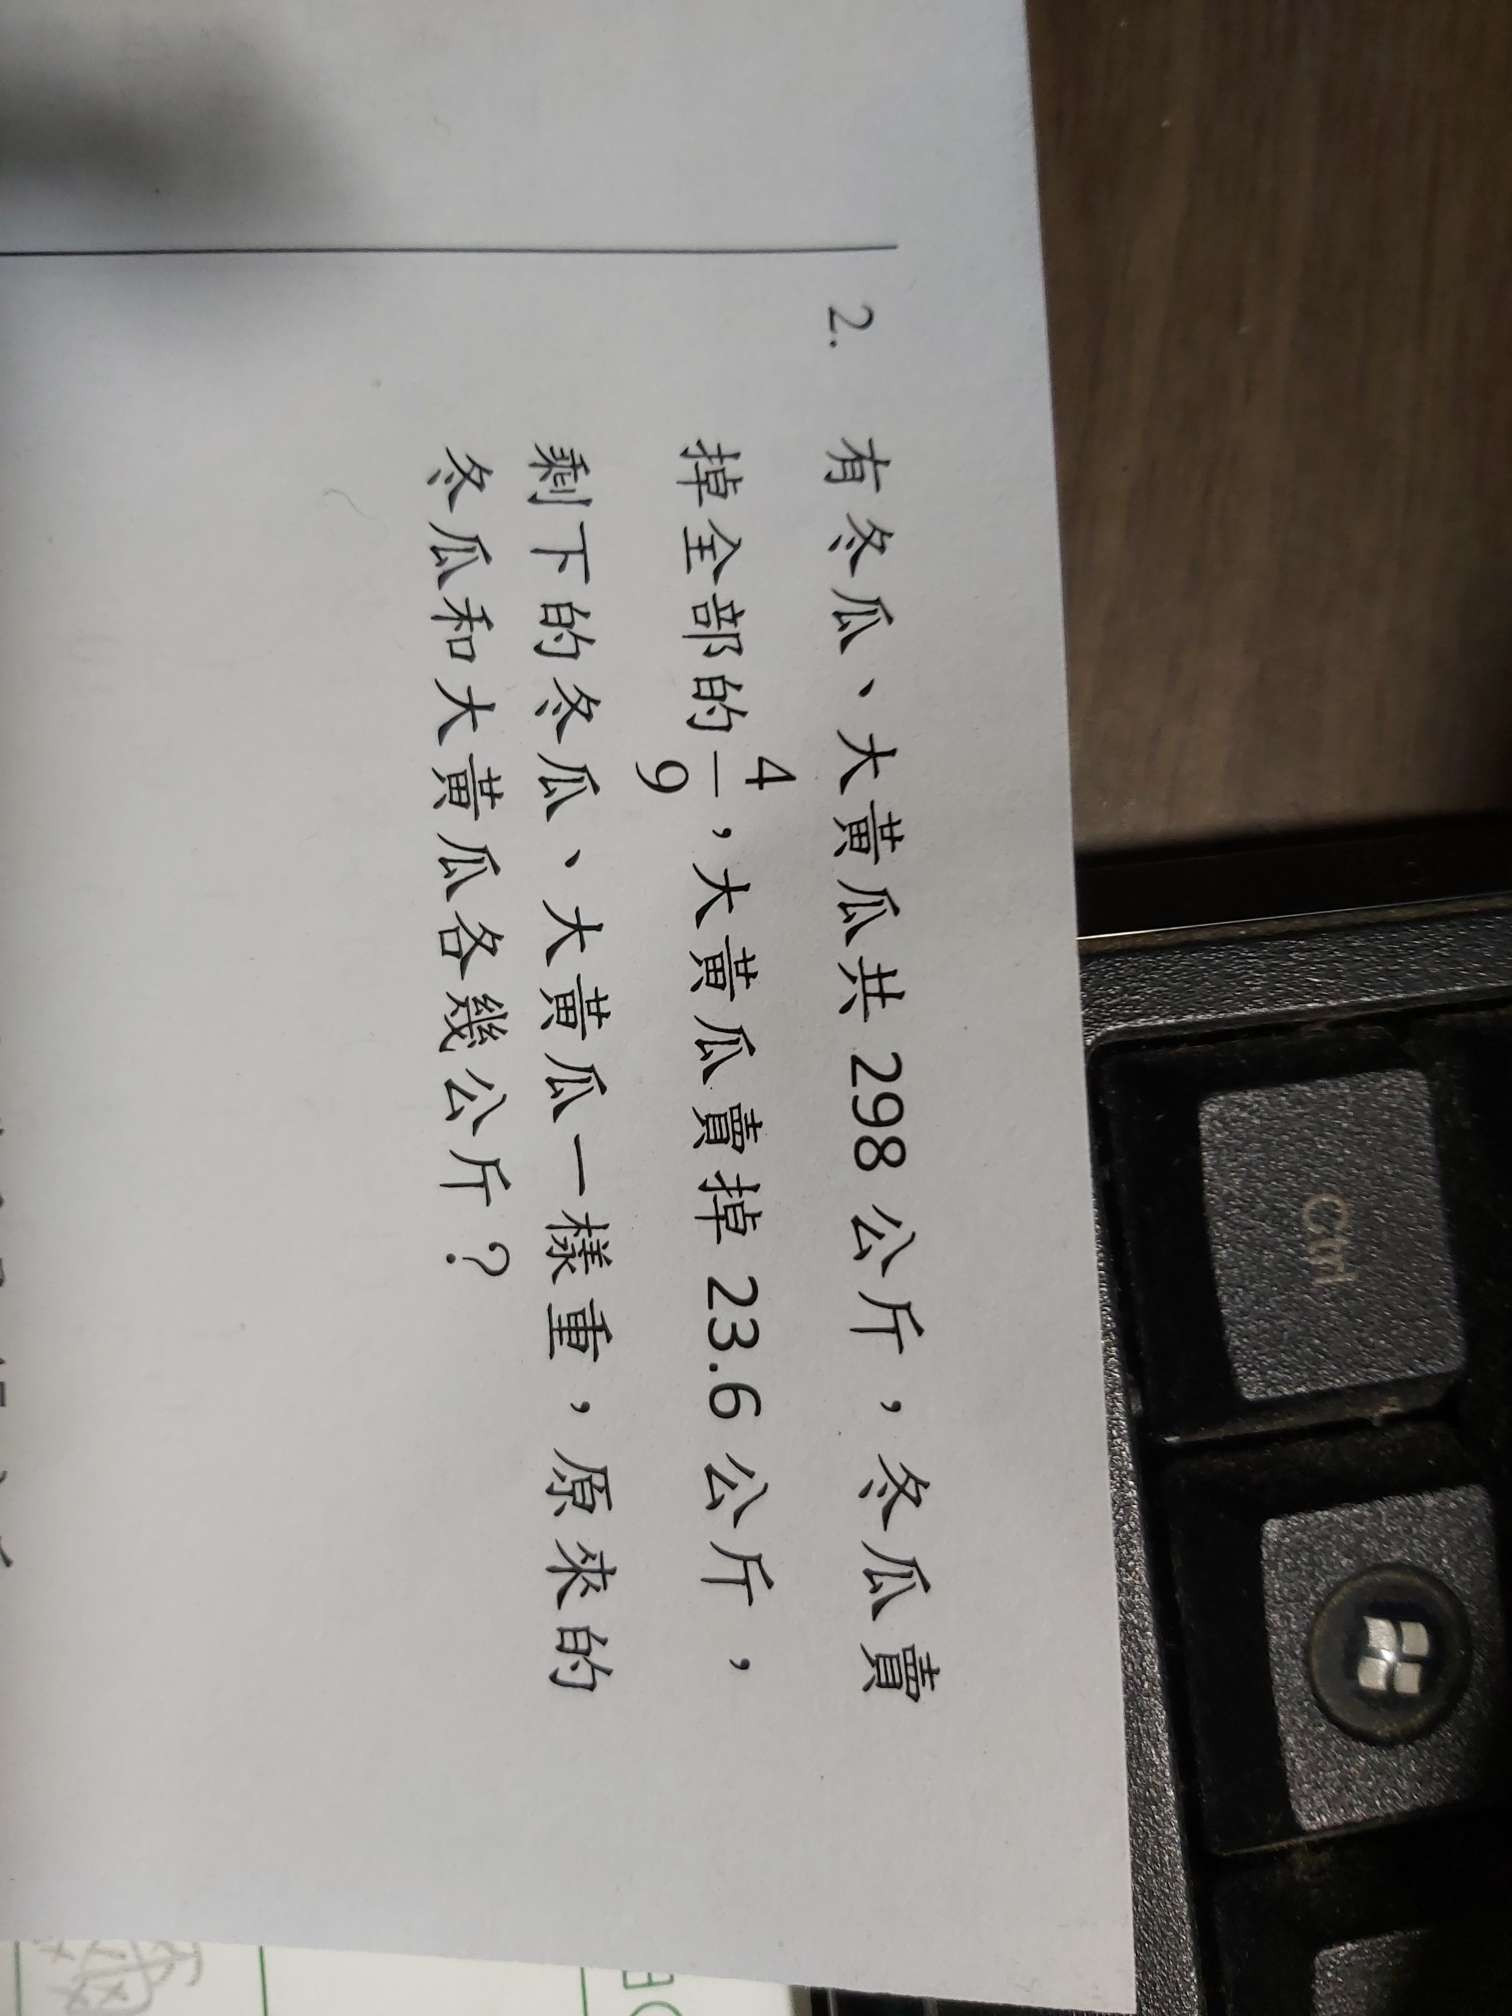 2. 有冬瓜、大黃瓜共 298 公斤，冬瓜賣
掉全部的 4/9，大黃瓜賣掉 23.6 公斤，
剩下的冬瓜、大黃瓜一樣重，原來的
冬瓜和大黃瓜各幾公斤？
Ctrl